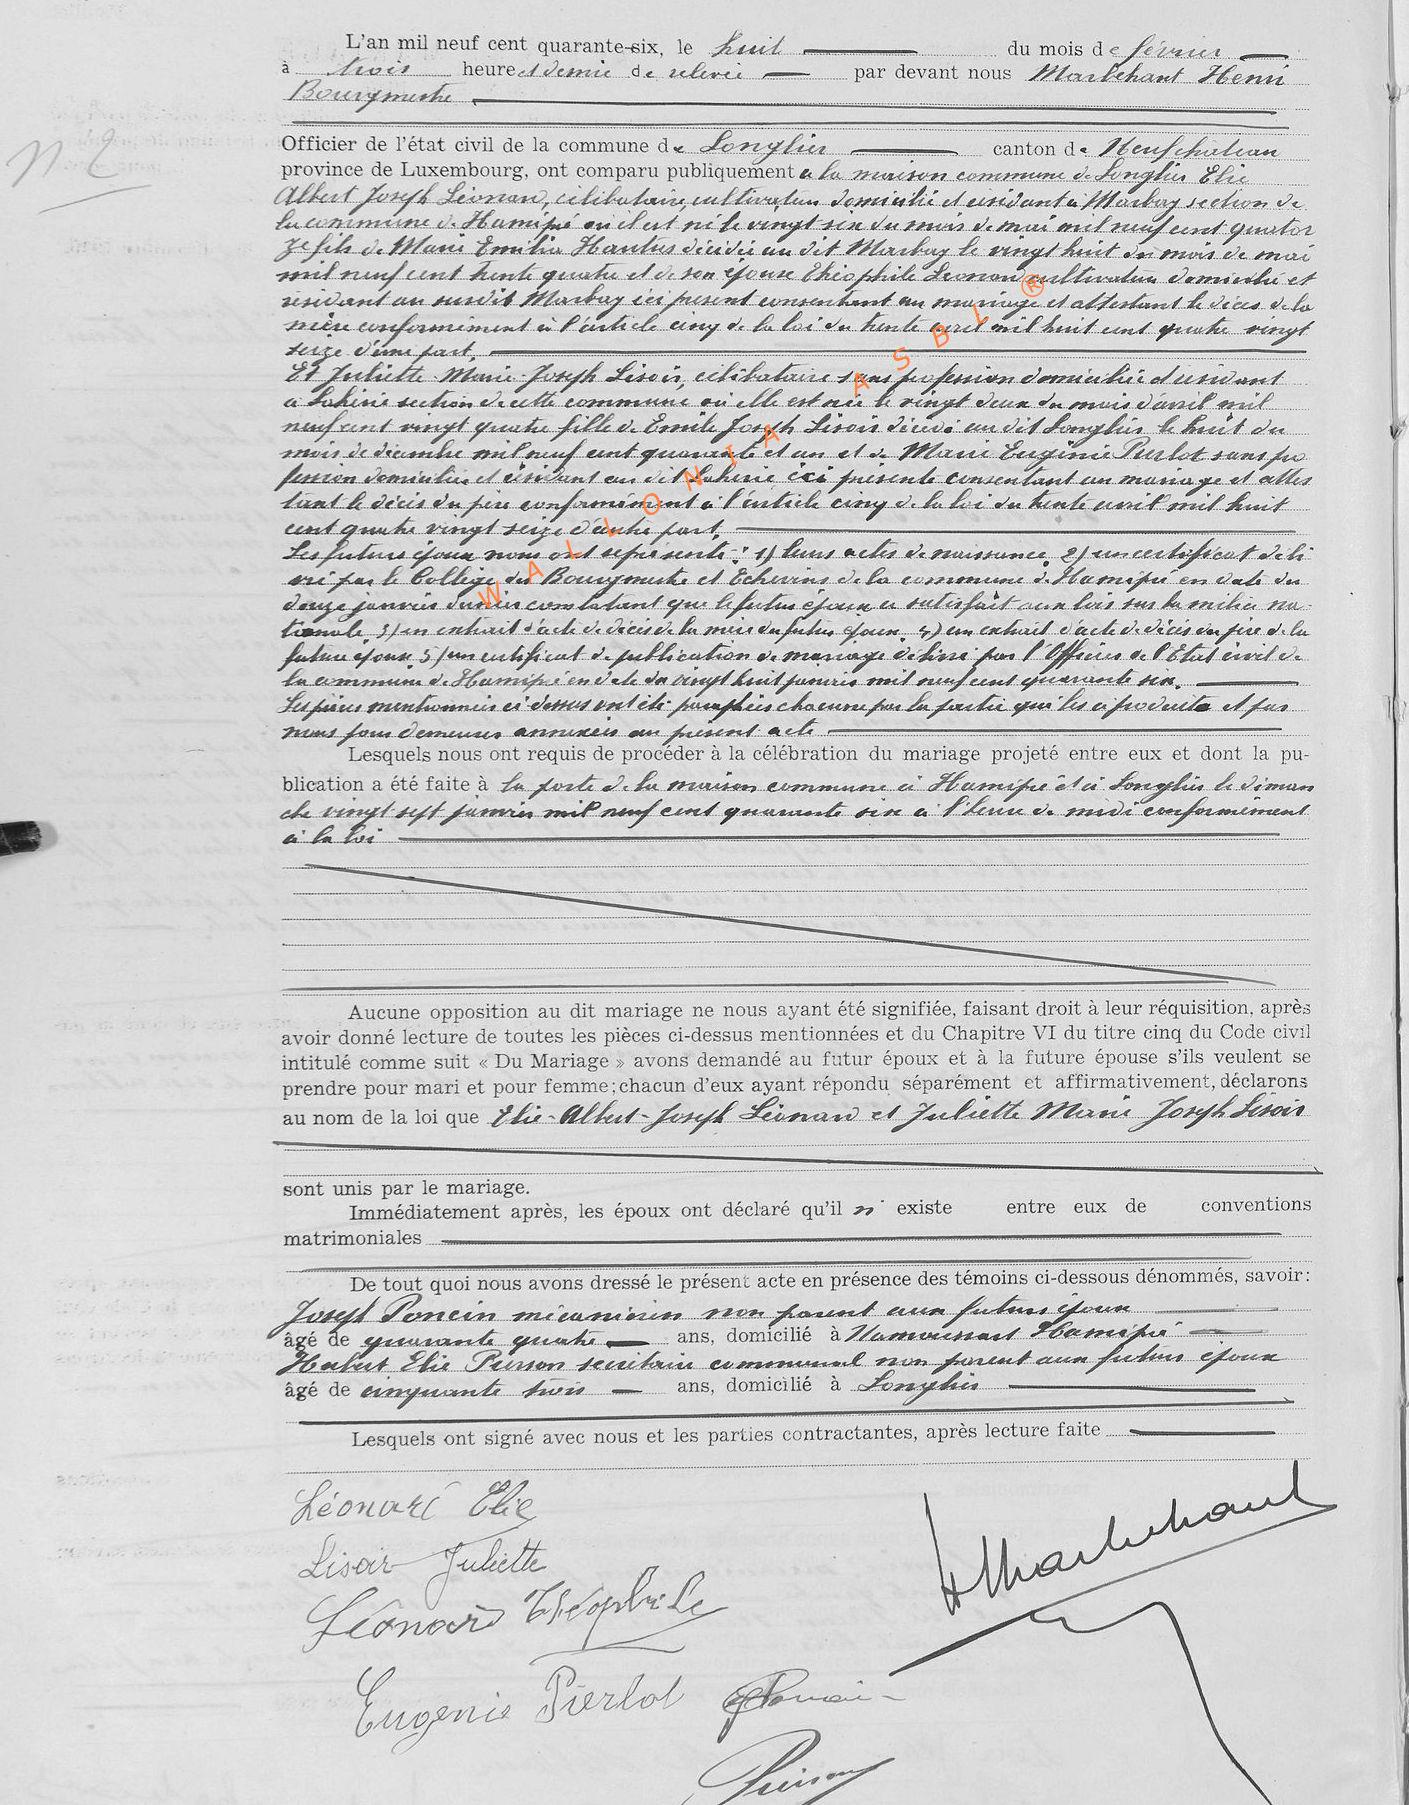 L'an mil neuf cent quarante-six, le huit du mois de février
à trois heures et demie de relevée par devant nous Marlehant Henri
Bourgmestre
N 2
Officier de l'état civil de la commune de Longlier canton de Neufchateau
province de Luxembourg, ont comparu publiquement à la maison commune de Longlier Elie
Albert Joseph Léonard, célibataire, cultivateur domicilié et résidant à Marbay section de
la commune de Hamipré où il est né le vingt six du mois de mai mil neuf cent quator
ze fils de Marie Emilia Hantus décédée au dit Marbay le vingt huit du mois de mai
mil neuf cent trente quatre et de son époux Théophile Léonard cultivateur domicilié et
résidant au susdit Marbay ici présent consentant au mariage et attestant le décès de la
mère conformément à l'article cinq de la loi du trente avril mil huit cent quatre vingt
seize d'une part.
Et Juliette Marie-Joseph Lisoir, célibataire sans profession domiciliée et résidant
à Laherie section de cette commune où elle est née le vingt deux du mois d'avril mil
neuf cent vingt quatre fille de Emile Joseph Lisoir décédé au dit Longlier le huit du
mois de décembre mil neuf cent quarante et un et de Marie Eugénie Pierlot sans pro
fession domiciliée et résidant au dit Laherie ici présente consentant au mariage et attes
tant le décès du père conformément à l'article cinq de la loi du trente avril mil huit
cent quatre vingt seize d'autre part.
Les futurs époux nous ont représenté : 1) leurs actes de naissance 2) un certificat déli
vré par le Collège des Bourgmestre et Echevins de la commune de Hamipré en date du
douze janvier dernier constatant que le futur époux a satisfait aux lois sur la milice na-
tionale 3) un extrait d'acte de décès de la mère du futur époux 4) un extrait d'acte de décès du père de la
future épouse 5) un certificat de publication de mariage délivré par l'Officier de l'Etat civil de
la commune de Hamipré en date du vingt huit janvier mil neuf cent quarante six.
Les pièces mentionnées ci dessus ont été paraphées chacune par la partie qui les a produite et par
nous pour demeurer annexées au présent acte
Lesquels nous ont requis de procéder à la célébration du mariage projeté entre eux et dont la pu-
blication a été faite à la porte de la maison commune à Hamipré et à Longlier le diman
che vingt sept janvier mil neuf cent quarante six à l'heure de midi conformément
à la loi
Aucune opposition au dit mariage ne nous ayant été signifiée, faisant droit à leur réquisition, après
avoir donné lecture de toutes les pièces ci-dessus mentionnées et du Chapitre VI du titre cinq du Code civil
intitulé comme suit « Du Mariage » avons demandé au futur époux et à la future épouse s'ils veulent se
prendre pour mari et pour femme; chacun d'eux ayant répondu séparément et affirmativement, déclarons
au nom de la loi que Elie-Albert-Joseph Léonard et Juliette Marie Joseph Lisoir
sont unis par le mariage.
Immédiatement après, les époux ont déclaré qu'il n' existe entre eux de conventions
matrimoniales
De tout quoi nous avons dressé le présent acte en présence des témoins ci-dessous dénommés, savoir:
Joseph Poncin mécanicien non parent aux futurs époux
âgé de quarante quatre ans, domicilié à Namoussart Hamipré
Hubert Elie Pierson secrétaire communal non parent aux futurs époux
âgé de cinquante trois ans, domicilié à Longlier
Lesquels ont signé avec nous et les parties contractantes, après lecture faite
Léonard Elie
Lisoir Juliette
Léonard Théophile
Eugenie Pierlot
Poncin
Pierson
H Marlehant
WALLONIA ASBL ®